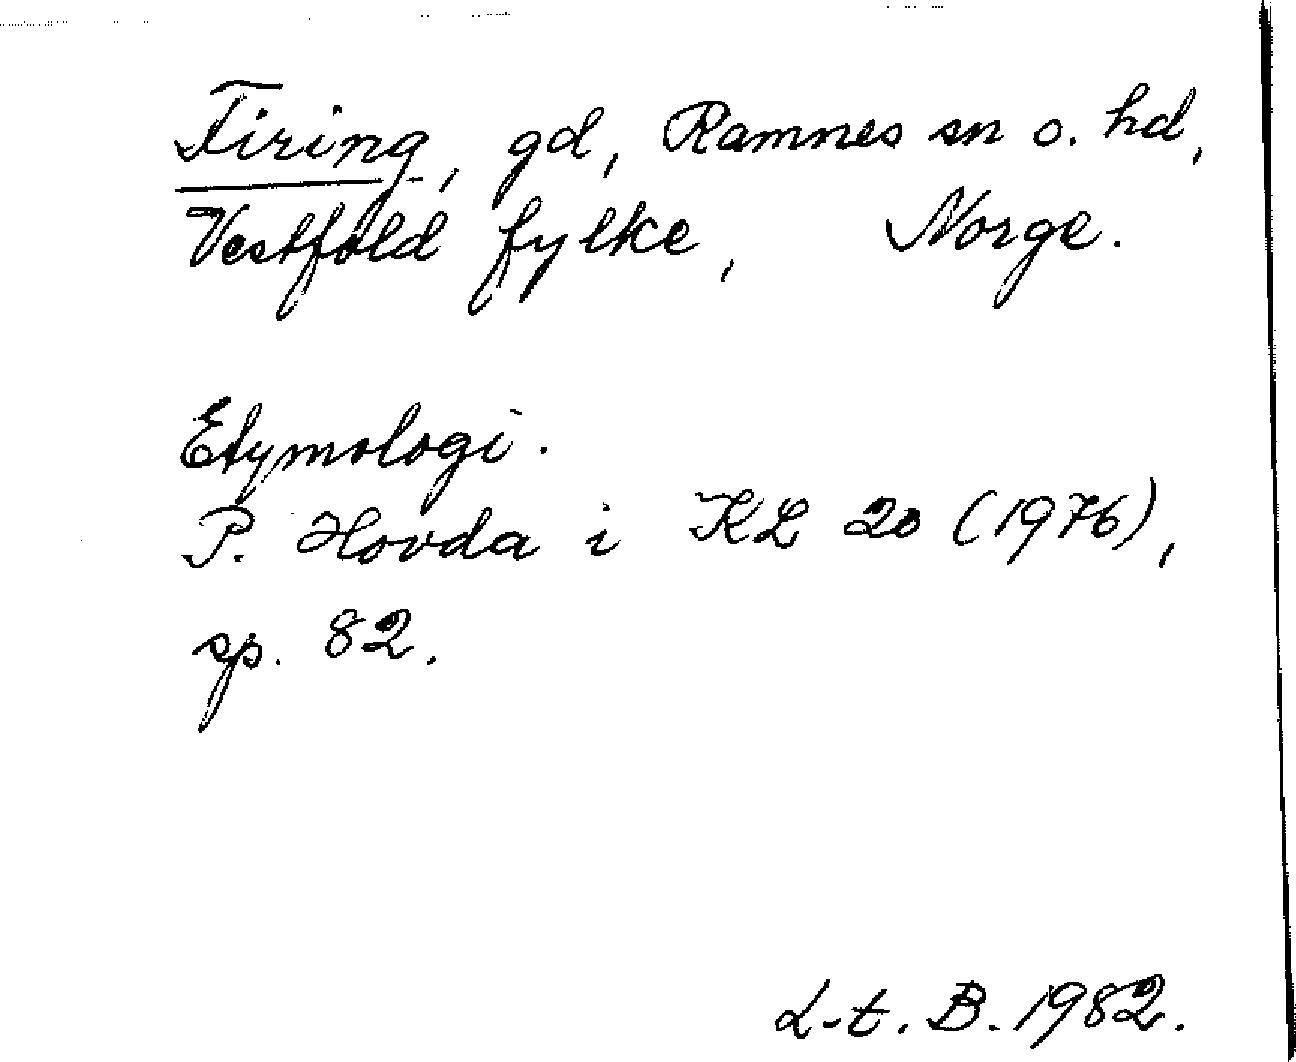 Firing, gd, Ramnes sn o. hd,
Vestfold fylke, Norge.
Etymologi.
P. Hovda i KL 20 (1976),
sp. 82.
L-t. B. 1982.